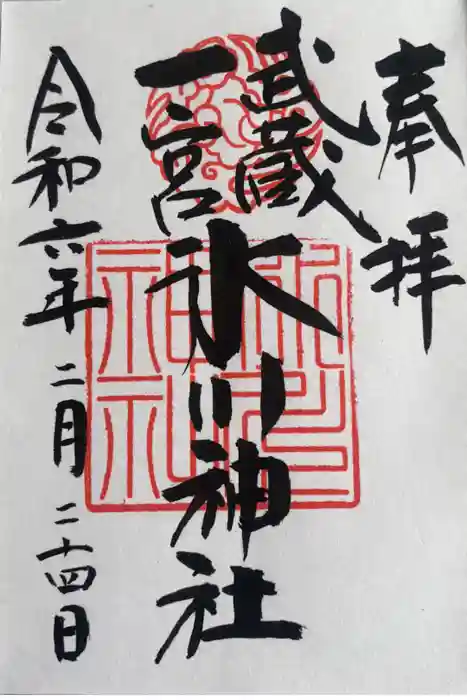 奉拝
武蔵
一宮
氷川神社
令和六年二月二十四日
氷川神社